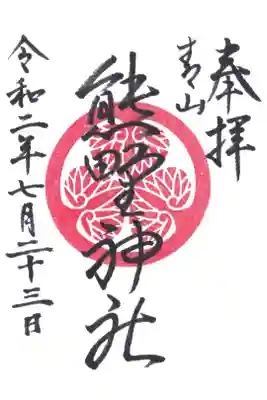 奉拝
青山
熊野神社
令和二年七月二十三日